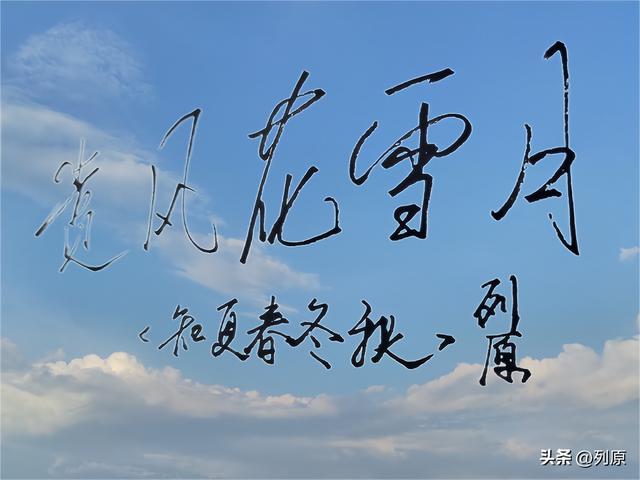 风花雪月
〈知夏春冬秋〉
列原
头条 @列原